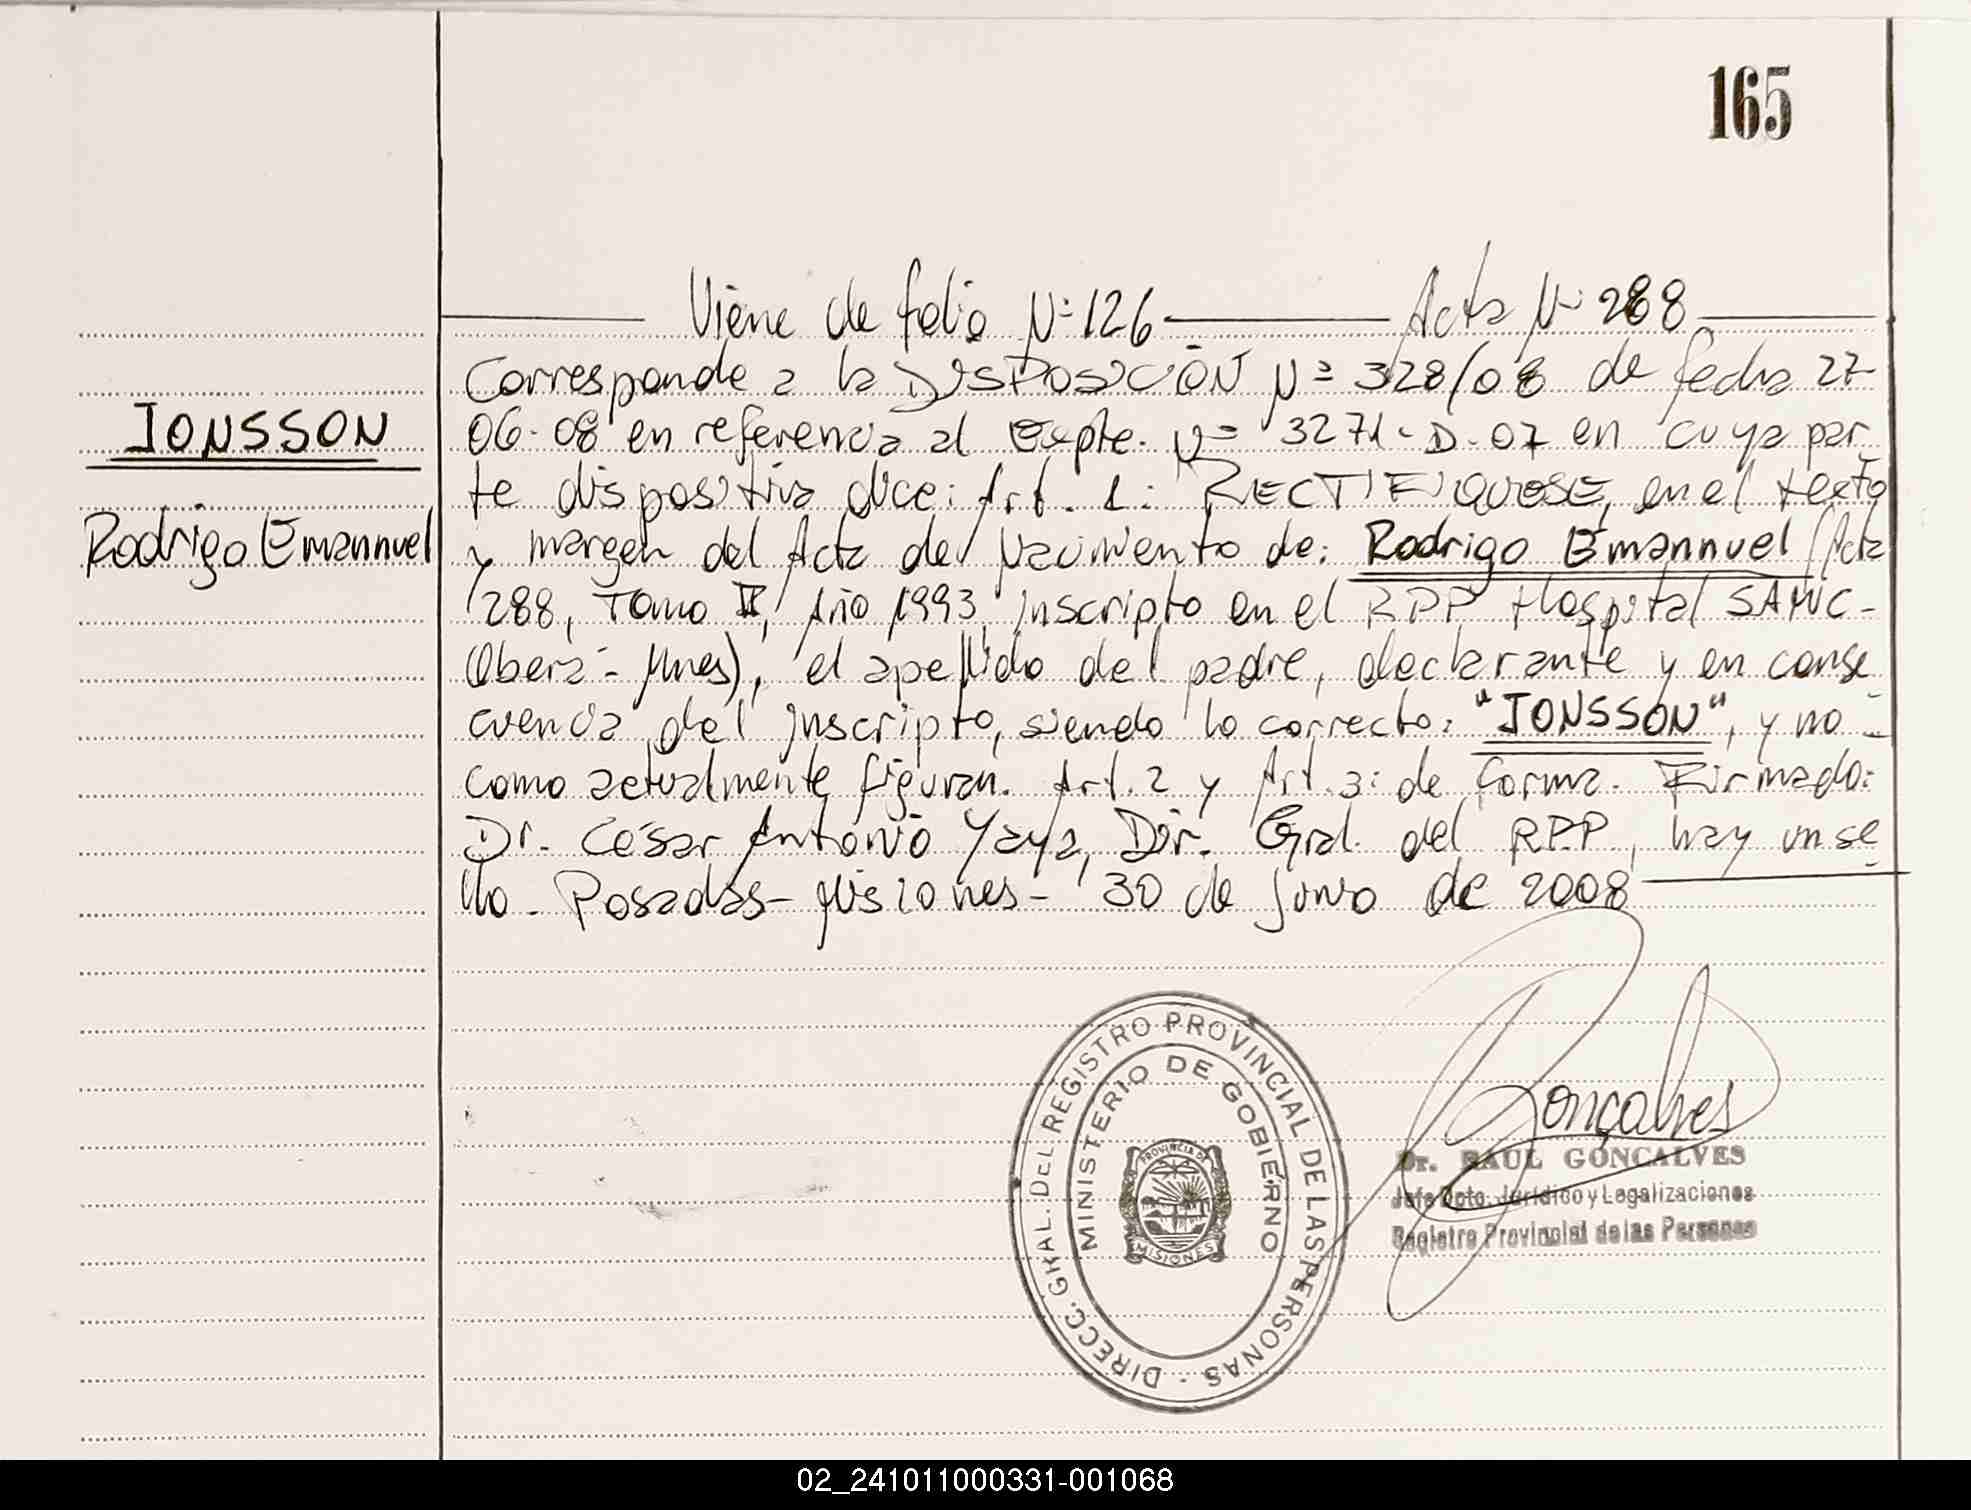 165
Viene de folio Nº 126 Acta Nº 288
Corresponde a la DISPOSICIÓN Nº 328/08 de fecha 27-
JONSSON
06-08 en referencia al Expte. Nº 3271-D-07 en cuya par
te dispositiva dice: Art. 1: RECTIFIQUESE, en el texto
Rodrigo Emannuel
y margen del Acta de Nacimiento de: Rodrigo Emannuel (Acta
288, Tomo II, Año 1993, inscripto en el RPP Hospital SAMIC-
Oberá- Mnes), el apellido del padre, declarante y en conse
cuencia del inscripto, siendo lo correcto: "JONSSON", y no -
como actualmente figuran. Art. 2 y Art. 3: de forma. Firmado:
Dr. César Antonio Yaya, Dir. Gral. del RPP, hay un se
llo. Posadas- Misiones- 30 de junio de 2008
DIRECC. GRAL. DEL REGISTRO PROVINCIAL DE LAS PERSONAS -
MINISTERIO DE GOBIERNO
PROVINCIA DE
MISIONES
Gonçalves
Dr. RAUL GONCALVES
Jefe Dpto. Jurídico y Legalizaciones
Registro Provincial de las Personas
02_241011000331-001068